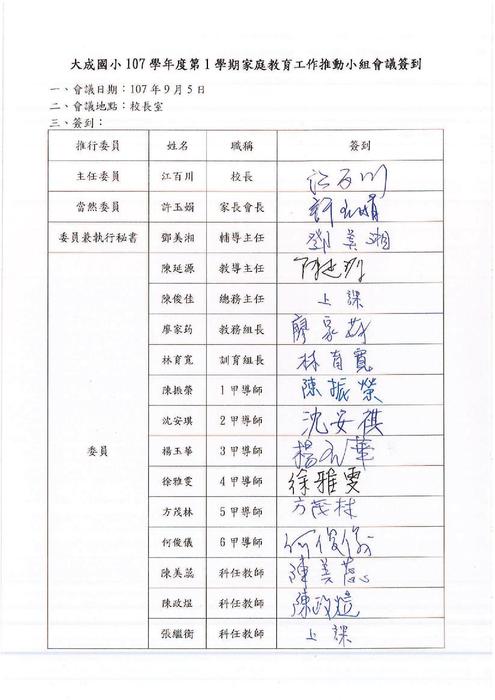 大成國小107學年度第1學期家庭教育工作推動小組會議簽到
一、會議日期：107年9月5日
二、會議地點：校長室
三、簽到：
推行委員 姓名 職稱 簽到
主任委員 江百川 校長 江百川
當然委員 許玉娟 家長會長 許玉娟
委員兼執行秘書 鄧美湘 輔導主任 鄧美湘
陳延源 教導主任 陳延源
陳俊佳 總務主任 上課
廖家葯 教務組長 廖家葯
林育寬 訓育組長 林育寬
陳振榮 1甲導師 陳振榮
沈安琪 2甲導師 沈安祺
委員 楊玉華 3甲導師 楊玉華
徐雅雯 4甲導師 徐雅雯
方茂林 5甲導師 方茂林
何俊儀 6甲導師 何俊儀
陳美蕊 科任教師 陳美蕊
陳政煴 科任教師 陳政煴
張繼衡 科任教師 上課